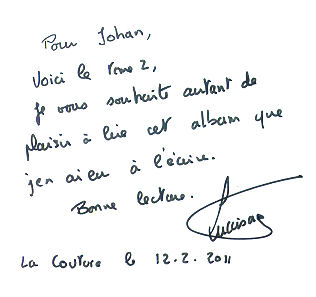 Pour Johan,
Voici le tome 2,
je vous souhaite autant de
plaisir à lire cet album que
j'en ai eu à l'écrire.
Bonne lecture.
La Couture le 12.2.2011